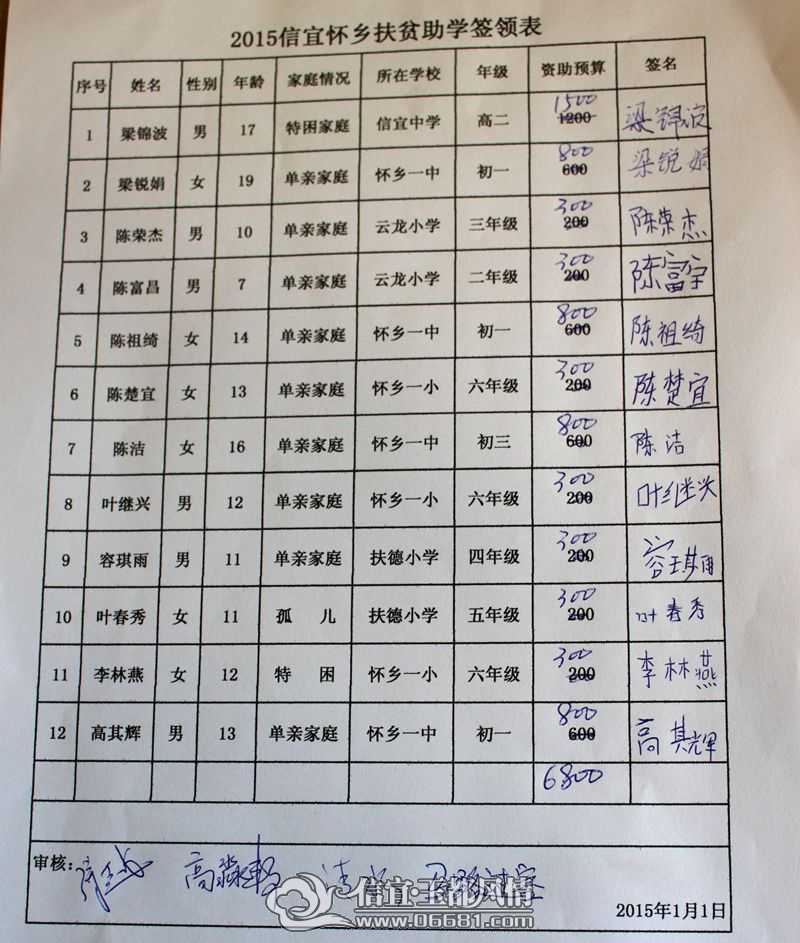 2015信宜怀乡扶贫助学签领表
序号 姓名 性别 年龄 家庭情况 所在学校 年级 资助预算 签名
1 梁锦波 男 17 特困家庭 信宜中学 高二 1500 1200 梁锦波
2 梁锐娟 女 19 单亲家庭 怀乡一中 初一 800 600 梁锐娟
3 陈荣杰 男 10 单亲家庭 云龙小学 三年级 300 200 陈荣杰
4 陈富昌 男 7 单亲家庭 云龙小学 二年级 300 200 陈富
5 陈祖绮 女 14 单亲家庭 怀乡一中 初一 800 600 陈祖绮
6 陈楚宜 女 13 单亲家庭 怀乡一小 六年级 300 200 陈楚宜
7 陈洁 女 16 单亲家庭 怀乡一中 初三 800 600 陈洁
8 叶继兴 男 12 单亲家庭 怀乡一小 六年级 300 200 叶继兴
9 容琪雨 男 11 单亲家庭 扶德小学 四年级 300 200 容琪雨
10 叶春秀 女 11 孤儿 扶德小学 五年级 300 200 叶春秀
11 李林燕 女 12 特困 怀乡一小 六年级 300 200 李林燕
12 高其辉 男 13 单亲家庭 怀乡一中 初一 800 600 高其辉
6800
审核: 高
信宜·玉都风情
www.06681.com
2015年1月1日